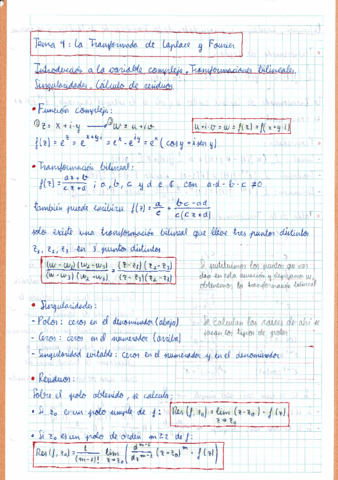 Tema 4: La Transformada de Laplace y Fourier
Introducción a la variable compleja. Transformaciones bilineales.
Singularidades. Cálculo de residuos
• Función compleja:
z = x + i·y → w = u + i·v
u + i·v = w = f(z) = f(x + y·i)
f(z) = e^z = e^{x+y·i} = e^x · e^{iy} = e^x (cos y + i sen y)
• Transformación bilineal:
f(z) = (az + b)/(cz + d) ; a, b, c y d ∈ ℂ, con a·d - b·c ≠ 0
también puede escribirse f(z) = a/c + (bc - ad)/(c(cz + d))
solo existe una transformación bilineal que lleve tres puntos distintos
z₁, z₂, z₃ en 3 puntos distintos
(w - w₁)(w₂ - w₃)/(w - w₃)(w₂ - w₁) = (z - z₁)(z₂ - z₃)/(z - z₃)(z₂ - z₁)
Si sustituimos los puntos que nos
dan en esta ecuación y despejamos w,
obtenemos la transformación bilineal
• Singularidades:
- Polos: ceros en el denominador (abajo)
- Ceros: ceros en el numerador (arriba)
- Singularidad evitable: ceros en el numerador y en el denominador
Se calculan las raíces de ahí se
sacan los tipos de polos
• Residuos:
Sobre el polo obtenido, se calcula:
• Si z₀ es un polo simple de f: Res(f, z₀) = lim_{z→z₀} (z - z₀) · f(z)
• Si z₀ es un polo de orden m ≥ 2 de f:
Res(f, z₀) = 1/(m-1)! lim_{z→z₀} (d^{m-1}/dz^{m-1} (z - z₀)^m · f(z))